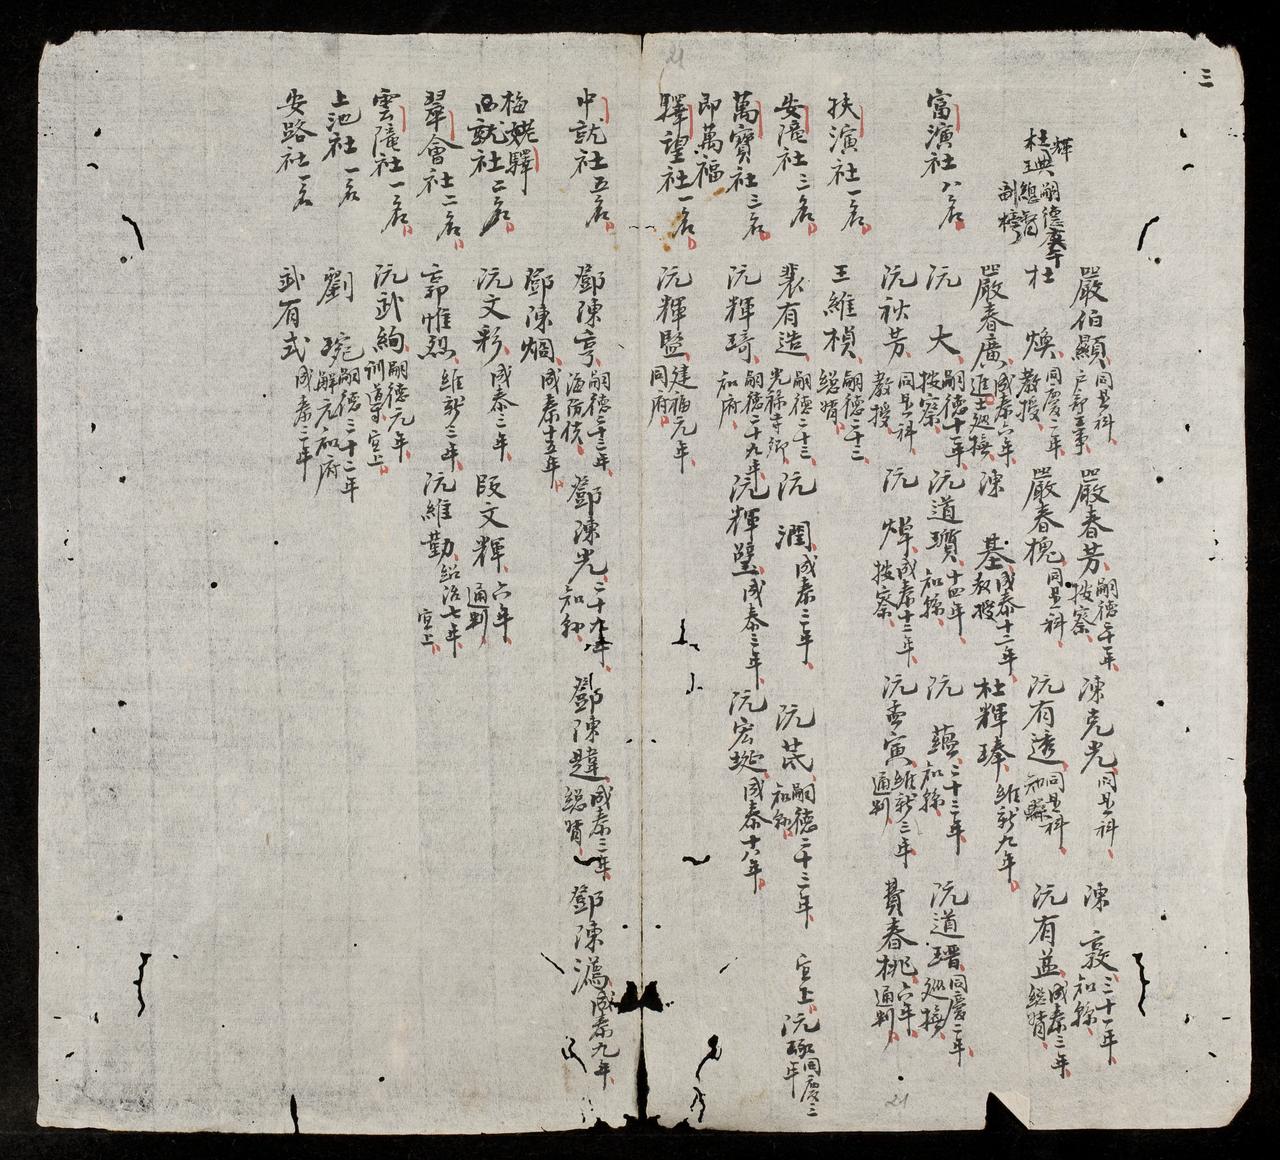 三
富演社八名
輝
杜璵嗣德庚午
總督
副榜
嚴伯顯同是科
嚴春芳嗣德二十一年
按察
陳克光同是科
陳敦三十一年
知縣
杜煥同慶二年
教授
嚴春槐同是科
阮有透同是科
知縣
阮有益成泰三年
總督
嚴春廣成泰六年
進士巡撫
陳基成泰十二年
教授
杜輝琫維新九年
阮大嗣德十一年
按察
阮道瓚十四年
知縣
阮蘊二十三年
知縣
阮道瑨同慶二年
巡撫
阮秋芳同是科
教授
阮焯成泰十二年
按察
阮孟寅維新三年
通判
費春桃六年
通判
扶演社一名
王維楨嗣德二十三
總督
安隴社三名
裴有造嗣德二十三
光祿寺卿
阮潤成泰三年
阮茂嗣德二十三年
知縣
宣上
阮琢同慶三年
萬寶社三名
即萬福
阮輝琦嗣德二十九年
知府
阮輝璧成泰三年
阮宏埏成泰十八年
驛望社一名
阮輝㬜建福元年
同府
中就社五名
鄧陳亨嗣德二十三年
海防使
鄧陳光二十九年
知縣
鄧陳韙成泰三年
總督
鄧陳潙成泰九年
鄧陳烱成泰十五年
梅姥驛
西就社二名
阮文彩成泰二年
段文輝六年
通判
翠會社二名
郭惟烈維新三年
阮維勤紹治七年
宣上
雲隴社一名
阮武絢嗣德元年
訓導宣上
上池社一名
劉琬嗣德三十二年
解元知府
安路社一名
武有式成泰二年